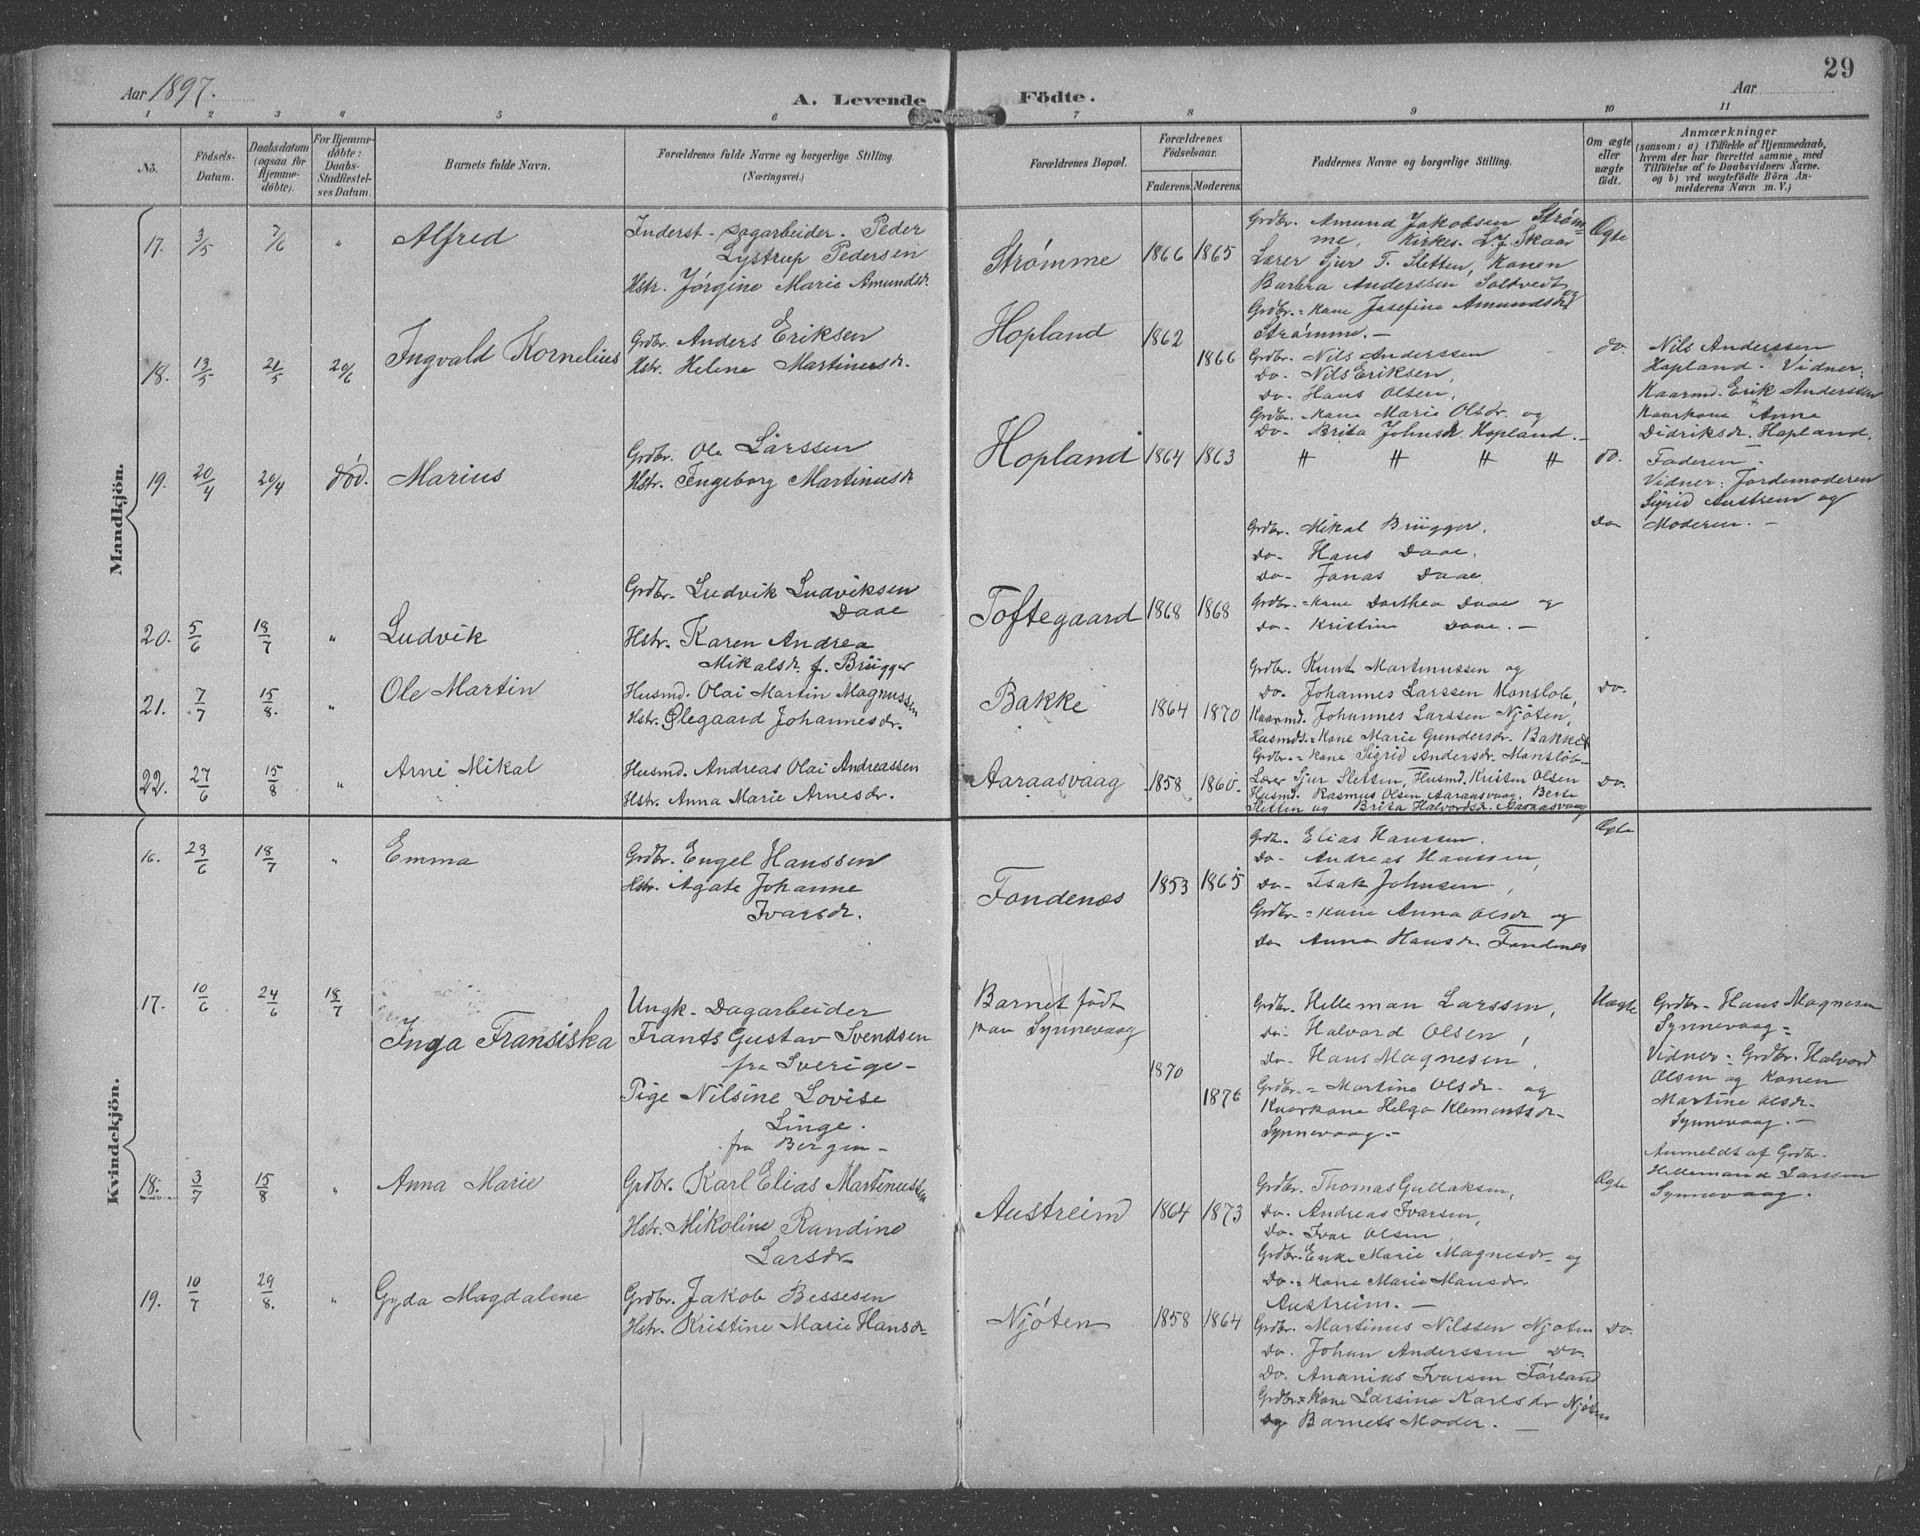 Aar 1897.
A. Levende Födte.
Aar
29
1 2 3 4 5 6 7 8 9 10 11
No.
Födsels-Datum.
Daabsdatum (ogsaa for Hjemmedöbte).
For Hjemmedöbte: Daabs-Stadfæstelses Datum.
Barnets fulde Navn.
Forældrenes fulde Navne og borgerlige Stilling. (Næringsvei.)
Forældrenes Bopæl.
Forældrenes Födselsaar.
Faderens. Moderens.
Faddernes Navne og borgerlige Stilling.
Om ægte eller uægte födt.
Anmærkninger
(saasom: a) i Tilfælde af Hjemmedaab, hvem der har forrettet samme, med Tilföielse af to Daabsvidners Navne. og b) ved uægtefödte Börn Anmelderens Navn m. V.)
Mandkjön.
17. 3/5 7/6 " Alfred
Inderst - Dagarbeider. Peder
Lystrup Pedersen
Hstr. Jørgine Marie Amundsdr.
Strømme 1866 1865
Grdbr. Amund Jakobsen Strøm-
me, Kirkes. L. J. Skaar
Lærer Sjur T. Sletten, Konen
Barbra Anderssen Soltvedt og
Grdbr.=kone Josefine Amundsdr
Strømme.-
Ægte
18. 13/5 21/5 20/6 Ingvald Kornelius
Grdbr. Anders Eriksen
Hstr. Helene Martinusdr.
Hopland 1862 1866
Grdbr. Nils Anderssen
Do- Nils Eriksen,
Do- Hans Olsen,
Grdbr.-kone Marie Olsdr. og
Do- Brita Johnsdr. Hopland.-
do.
Nils Anderssen
Hopland. Vidner:
Kaarmd. Erik Anderssen
Kaarkone Anna
Didriksdr. Hopland.
19. 20/4 20/4 död. Marius
Grdbr. Ole Larssen
Hstr. Ingeborg Martinusdr
Hopland 1864 1863
" " " "
do.
Faderen.
Vidner: Jordemoderen
Sigrid Austrem og
Moderen. -
20. 5/6 18/7 " Ludvik
Grdbr. Ludvik Ludviksen
Daae
Hstr. Karen Andrea
Mikalsdr. f. Brügger
Toftegaard 1868 1868
Grdbr. Mikal Brügger.
Do- Hans Daae.
Do- Jonas Daae.
Grdbr.=kone Dorthea Daae og
Do- Kristine Daae.-
Do-
21. 7/7 15/8. " Ole Martin
Husmd. Olai Martin Magnussen
Hstr. Ølegaard Johannesdr.
Bakke 1864 1870
Grdbr. Knut Martinussen og
Do- Johannes Larssen Monslob,
Kaarmd. Johannes Larssen Njöten,
Husmds.=Kone Marie Gundersdr. Bakke,
Grdbr.=kone Sigrid Andersdr. Monslob-
Do.
22. 27/6 15/8 " Arne Mikal
Husmd. Andreas Olai Andreassen
Hstr. Anna Marie Arnesdr.
Aaraasvaag 1858 1860.
Lærer Sjur Sletten, Husmd. Kristen Olsen
Husmd. Rasmus Olsen Aaraasvaag. Berte
Sletten og Brita Halvordsdr. Aaraasvaag
Do.
Kvindekjön.
16. 23/6 18/7 " Emma
Grdbr. Engel Hanssen
Hstr. Agate Johanne
Ivarsdr.
Fondenæs 1853 1865
Grdbr. Elias Hanssen.
Do- Andreas Hanssen,
Do- Isak Johnsen.,
Grdbr.=kone Anna Olsdr og
Do- Anna Hansdr. Fondenes
Ægte
17. 10/6 24/6 18/7 Inga Fransiska
Ungk- Dagarbeider
Frants Gustav Svendsen
fra Sverige-
Pige Nilsine Lovise
Linge.
fra Bergen-
Barnet födt
paa Synnevaag
1870 1876
Grdbr. Helleman Larssen,
do- Halvord Olsen,
Do- Hans Magnesen,
Grdbr.=Martine Olsdr. og
Kaarkone Helga Klementsdr-
Synnevaag.-
Uægte
Grdbr- Hans Magnesen
Synnevaag=
Vidner: Grdbr. Halvord
Olsen og Konen
Martine Olsdr.
Synnevaag.-
Anmeldt af Grdbr.
Hellemand Larssen
Synnevaag.
18. 3/7 15/8 " Anna Marie
Grdbr. Karl Elias Martinussen
Hstr. Mikoline Randine
Larsdr
Austreim 1864 1873
Grdbr. Thomas Gullaksen,
Do- Andreas Ivarsen,
Do- Ivar Olsen,
Grdbr. Enke Marie Magnesdr. og
Do.=kone Marie Monsdr.
Austreim.-
Ægte
19. 10/7 29/8. " Gyda Magdalene
Grdbr. Jakob Bessesen
Hstr. Kristine Marie Hansdr
Njöten 1858 1864
Grdbr. Martinus Nilssen Njöten
Do. Johan Anderssen Do.
Do. Ananias Ivarsen Förland
Grdbr.=Kone Larsine Karlsdr Njöten
og Barnets Moder. -
Do.